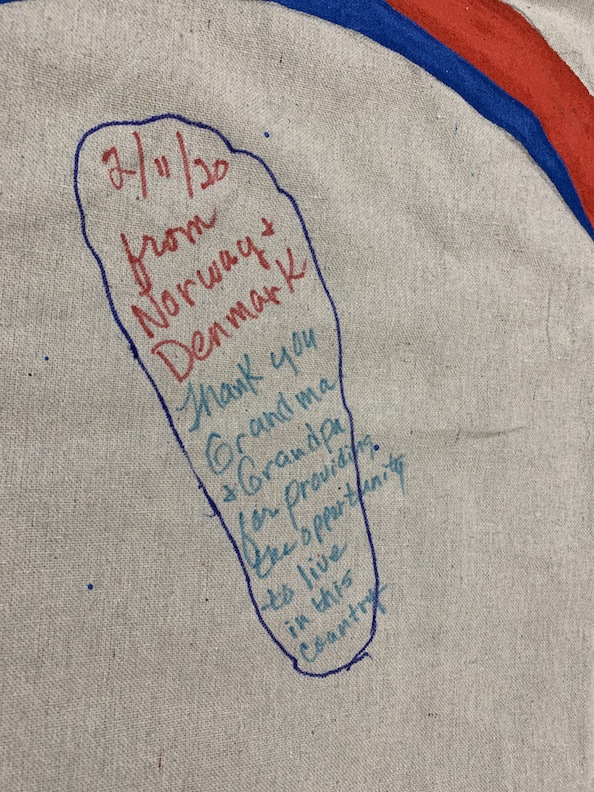 2/11/20
from
Norway +
Denmark
Thank you
Grandma
+ Grandpa
for providing
the opportunity
to live
in this
country